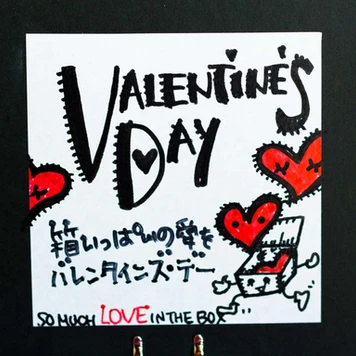 VALENTINE'S
DAY
箱いっぱいの愛を
バレンタインズ・デー
SO MUCH LOVE IN THE BOX